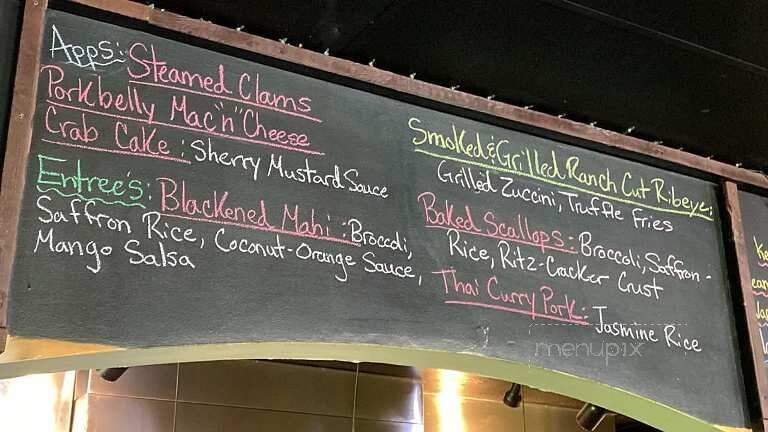 Apps: Steamed Clams
Porkbelly Mac"n"Cheese
Crab Cake: Sherry Mustard Sauce
Entree's: Blackened Mahi: Broccoli,
Saffron Rice, Coconut-Orange Sauce,
Mango Salsa
Smoked & Grilled Ranch Cut Ribeye:
Grilled Zuccini, Truffle Fries
Baked Scallops: Broccoli, Saffron-
Rice, Ritz-Cracker Crust
Thai Curry Pork: Jasmine Rice
menupix